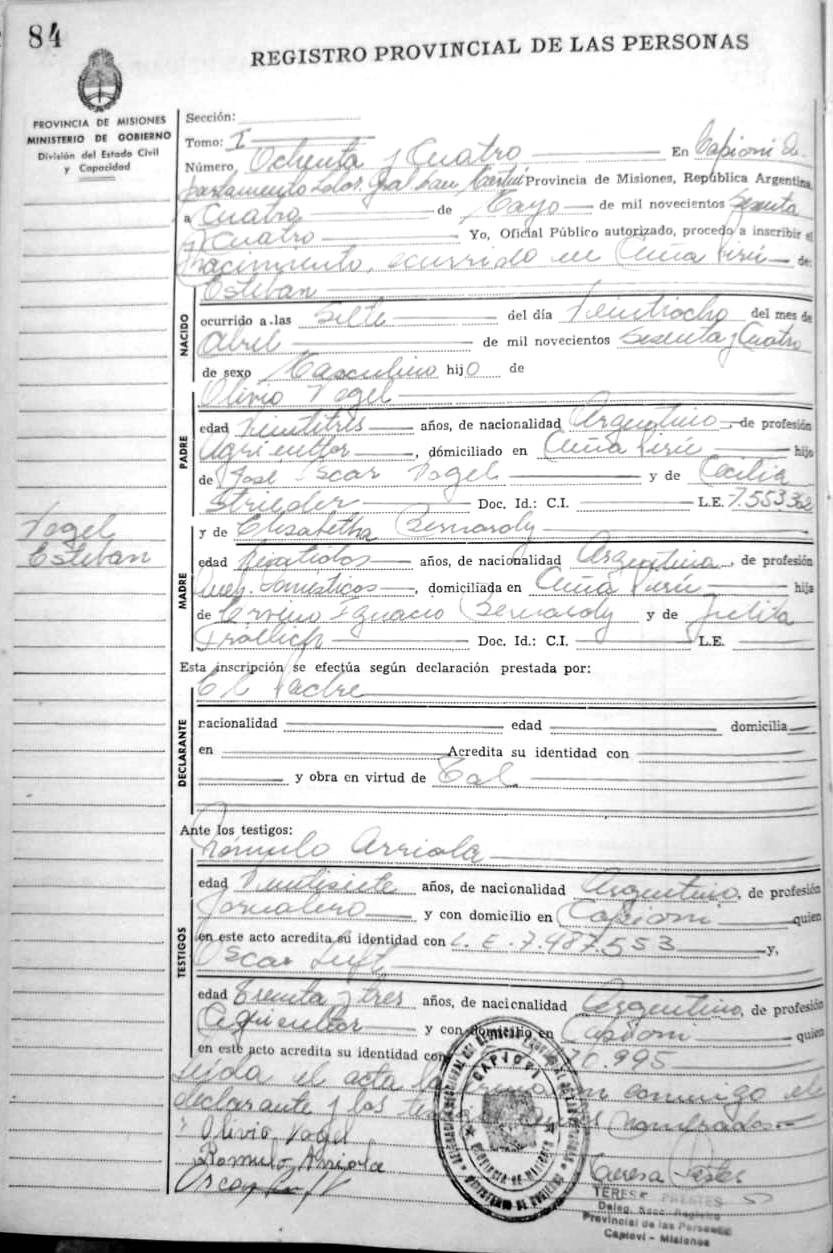 84
REGISTRO PROVINCIAL DE LAS PERSONAS
PROVINCIA DE MISIONES
MINISTERIO DE GOBIERNO
División del Estado Civil
y Capacidad
Vogel
Esteban
Sección:
Tomo: I
Número Ochenta y Cuatro En Capioví de-
partamento Ldor. Gral. San Martín Provincia de Misiones, República Argentina
a Cuatro de Mayo de mil novecientos Sesenta
y Cuatro Yo, Oficial Público autorizado, procedo a inscribir el
nacimiento, ocurrido en Cuña Pirú de:
NACIDO
Esteban
ocurrido a las Siete del día Veintiocho del mes de
Abril de mil novecientos Sesenta y Cuatro
de sexo Masculino hijo de
PADRE
Olivio Vogel
edad Veintitres años, de nacionalidad Argentino, de profesión
Agricultor, domiciliado en Cuña Pirú hijo
de José Oscar Vogel y de Cecilia
Strieder Doc. Id.: C.I. L.E. 7.553.362
MADRE
y de Elisabetha Bernardy
edad años, de nacionalidad Argentina, de profesión
Queh. Domésticos, domiciliada en Cuña Pirú hija
de Ervino Ignacio Bernardy y de Julita
Fröllich Doc. Id.: C.I. L.E.
Esta inscripción se efectúa según declaración prestada por:
El Padre
DECLARANTE
nacionalidad edad domicilia
en Acredita su identidad con
y obra en virtud de Tal
Ante los testigos:
TESTIGOS
Rómulo Arriola
edad Veintisiete años, de nacionalidad Argentino, de profesión
Jornalero y con domicilio en Capioví quien
en este acto acredita su identidad con L.E. 7.487.553 y,
Oscar Luft
edad Treinta y tres años, de nacionalidad Argentino, de profesión
Agricultor y con domicilio en Capioví quien
en este acto acredita su identidad con 70.995
Leída el acta la conmigo el
declarante y los nombrados
Olivio Vogel
Romulo Arriola
Teresa Prestes
CAPIOVI
PROVINCIA DE MISIONES
TERESA PRESTES
Deleg. Secc. Registro
Provincial de las Personas
Capioví - Misiones